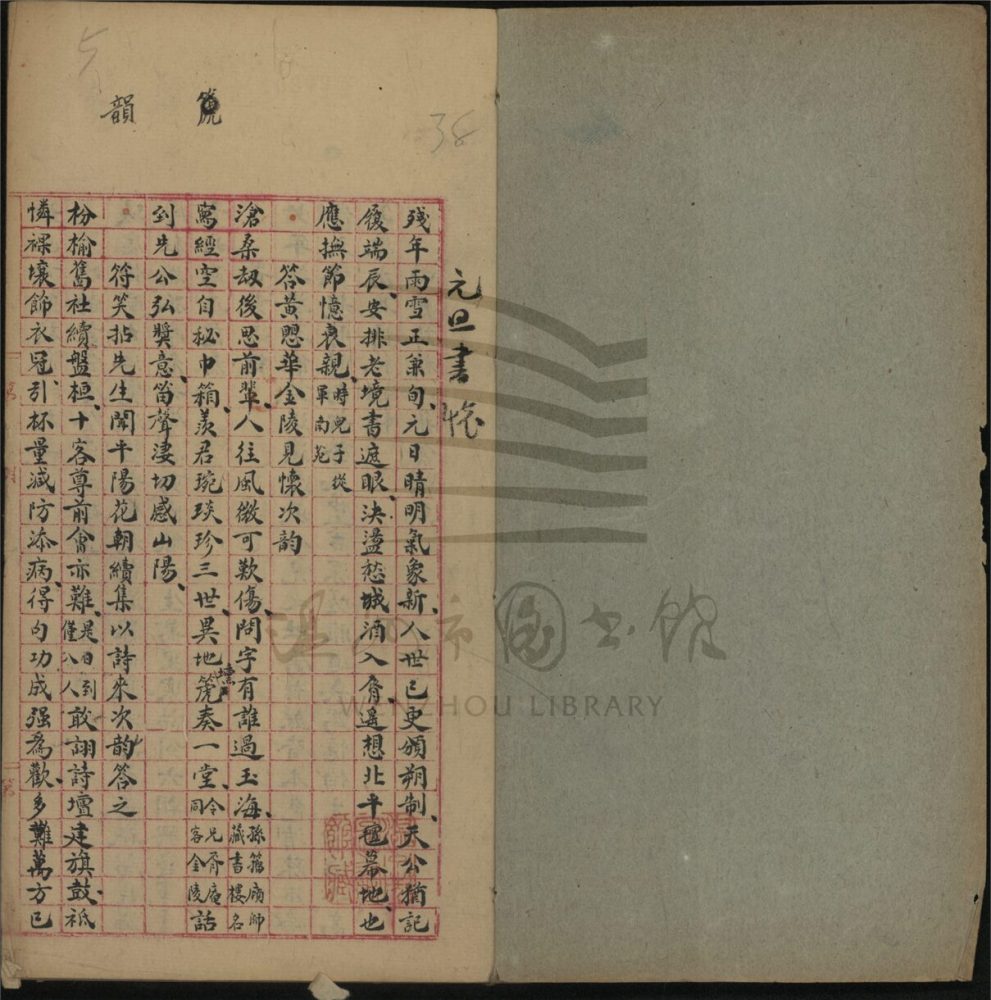 元旦書懷
殘年雨雪正兼旬、元日晴明氣象新、人世已更頒朔制、天公猶記
履端辰、安排老境書遮眼、決盪愁城酒入脣、遙想北平氊幕地、也
應撫節憶衰親、時兒子從軍南苑
答黃愳華金陵見懷次韵
滄桑刼後思前輩、人往風微可歎傷、問字有誰過玉海、孫籀廎師藏書樓名
寫經空自秘巾箱、羨君琬琰珍三世、異地箎奏一堂、令兄胥庵同客金陵話
壎
到先公弘獎意、笛聲淒切感山陽、
符笑拈先生聞平陽花朝續集以詩來次韵答之
枌榆舊社續盤桓、十客尊前會亦難、是日到僅八人敢詡詩壇建旗鼓、祗
憐裸壤飾衣冠、引杯量減防添病、得句功成强為歡、多難萬方已
箎
韻
38
溫州市圖書館
WENZHOU LIBRARY